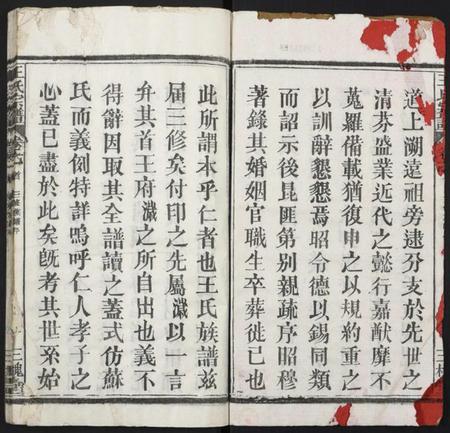 道上溯遠祖旁逮分支於先世之
清芬盛業近代之懿行嘉猷靡不
蒐羅備載猶復申之以規約重之
以訓辭懇懇焉昭令德以錫同類
而詔示後昆匪第別親疏序昭穆
著錄其婚姻官職生卒葬徙已也
此所謂本乎仁者也王氏族譜茲
屆三修矣付印之先屬濊以一言
弁其首王府濊之所自出也義不
得辭因取其全譜讀之蓋式仿蘇
氏而義例特詳嗚呼仁人孝子之
心蓋已盡於此矣旣考其世系始
王氏宗譜
三槐堂